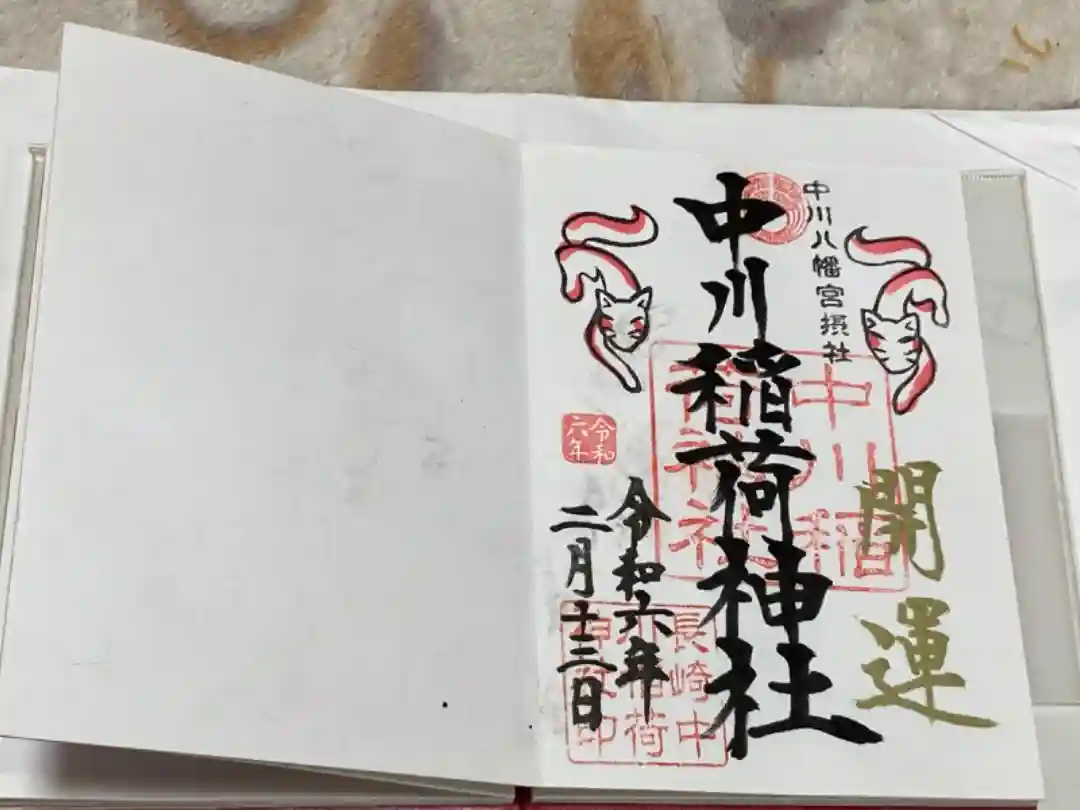 開運
中川八幡宮摂社
中川稲荷神社
中川稲
荷神社
令和六年
二月十三日
令和
六年
長崎中
川稲荷